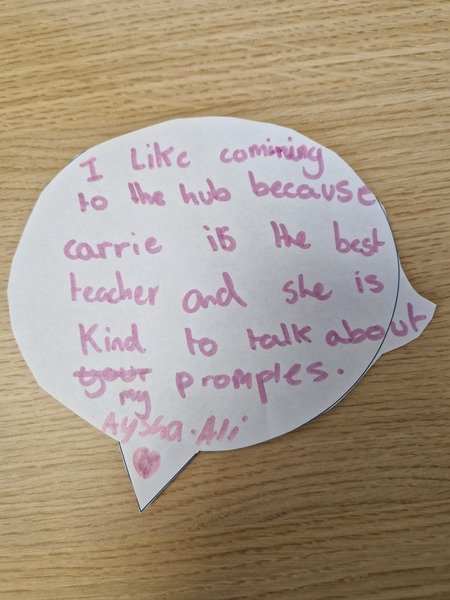 I Like comining
to the hub because
carrie is the best
teacher and she is
Kind to talk about
your my promples.
Aysha.Ali